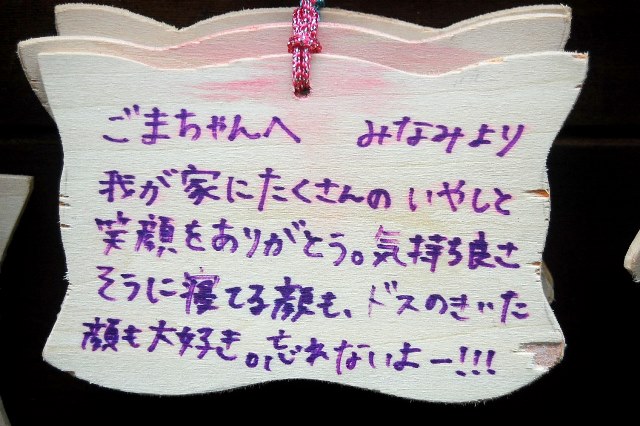 ごまちゃんへ　みなみより
我が家にたくさんの いやしと
笑顔をありがとう。気持ち良さ
そうに寝てる顔も、ドスのきいた
顔も大好き。忘れないよー!!!